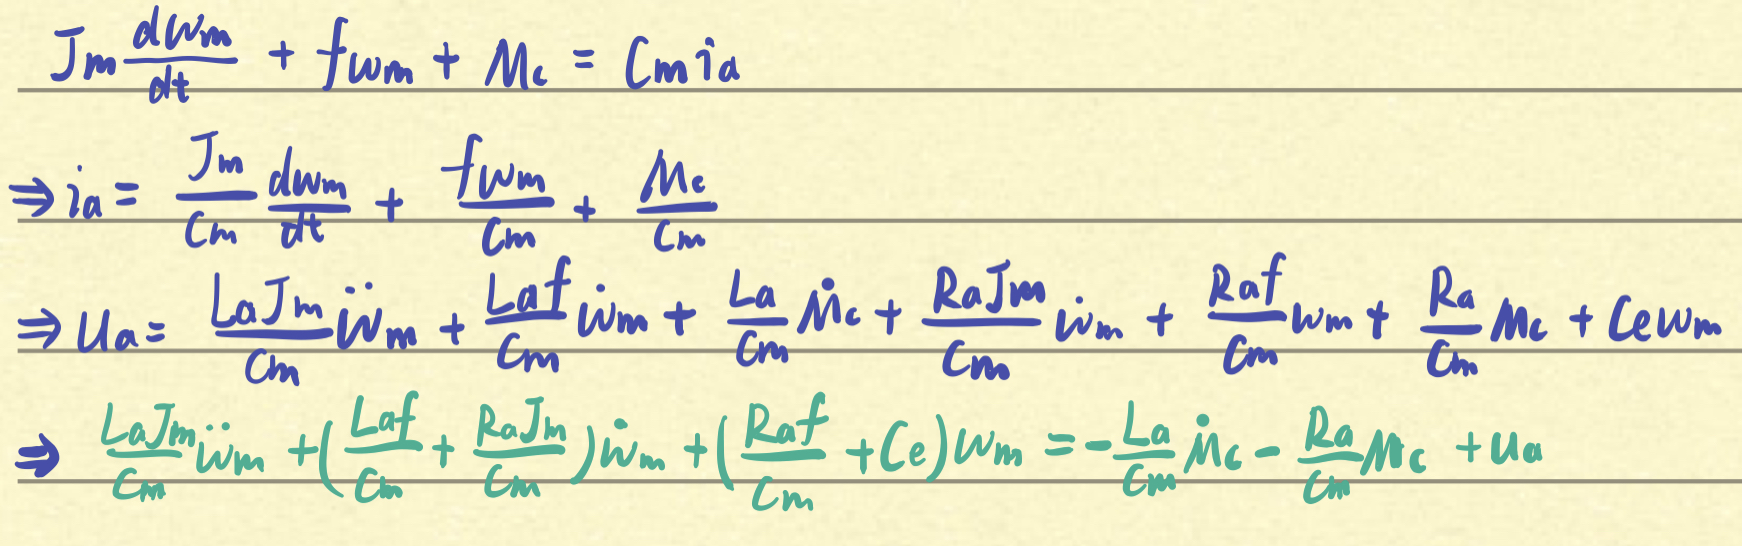 Jm dωm/dt + fωm + Mc = Cm ia
⇒ ia = Jm/Cm dωm/dt + fωm/Cm + Mc/Cm
⇒ ua = LaJm/Cm ω̈m + Laf/Cm ω̇m + La/Cm Ṁc + RaJm/Cm ω̇m + Raf/Cm ωm + Ra/Cm Mc + Ceωm
⇒ LaJm/Cm ω̈m + (Laf/Cm + RaJm/Cm)ω̇m + (Raf/Cm + Ce)ωm = -La/Cm Ṁc - Ra/Cm Mc + ua